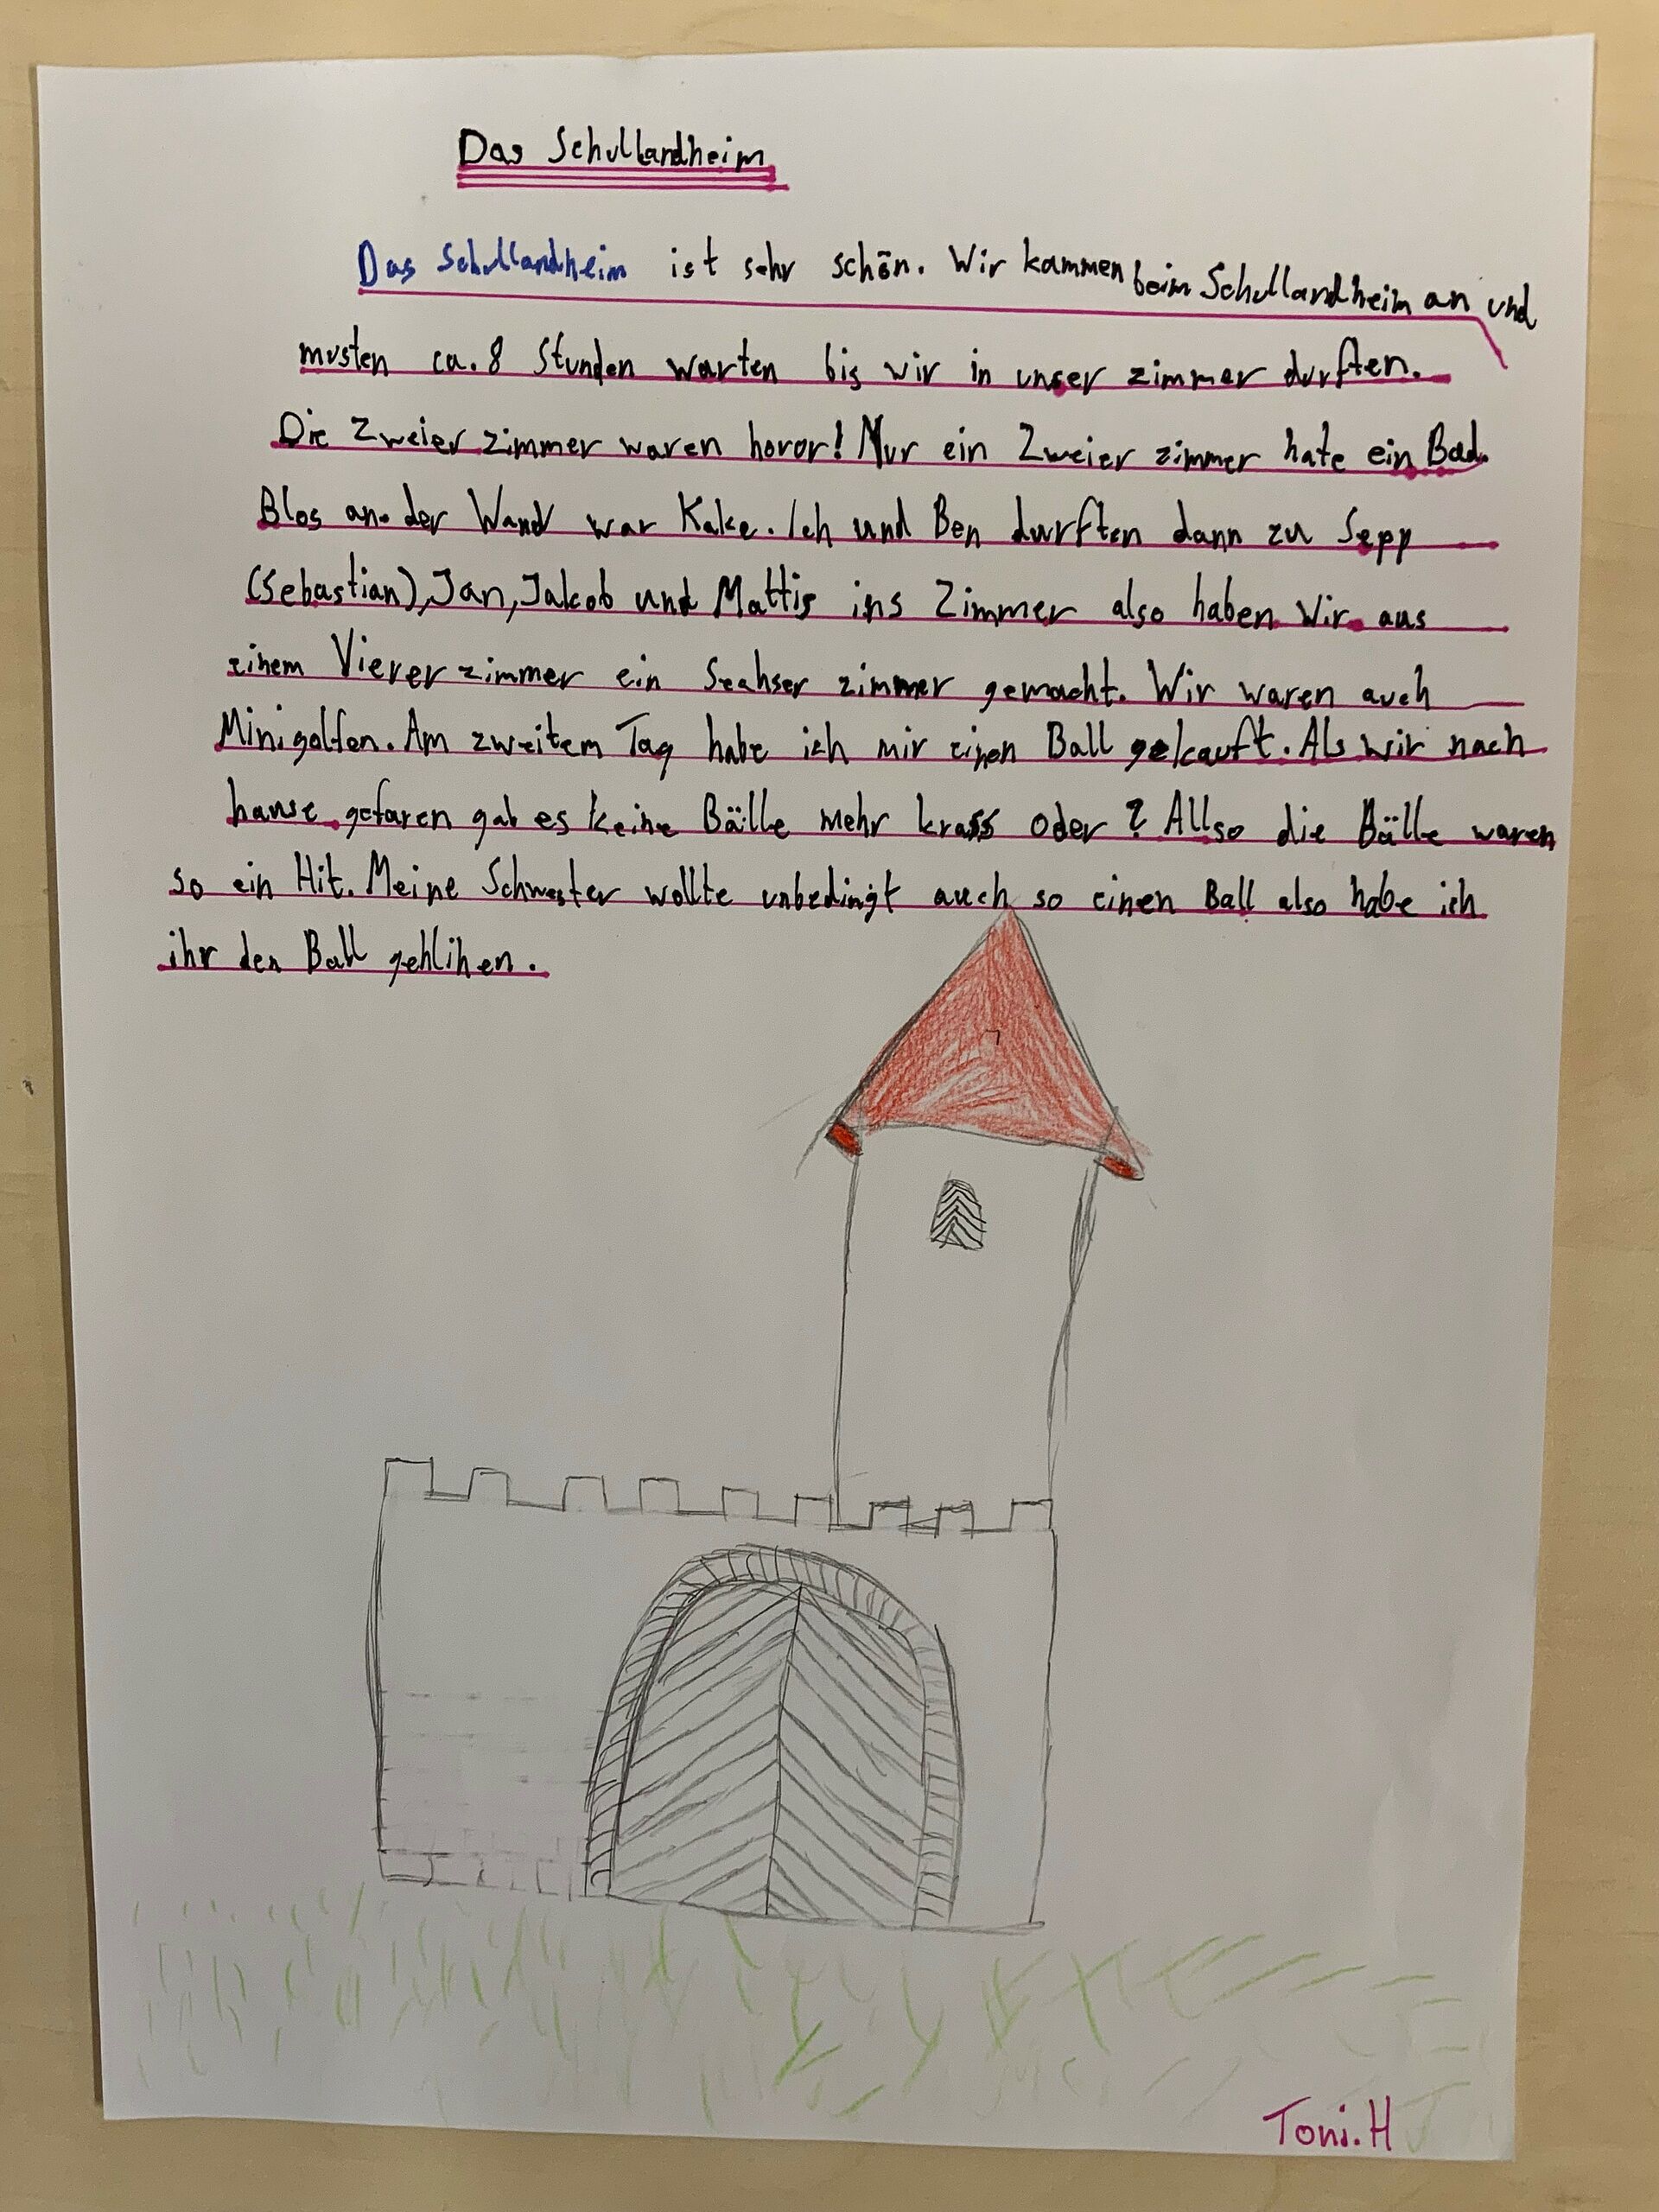 Das Schullandheim
Das Schullandheim ist sehr schön. Wir kammen beim Schullandheim an und
musten ca. 8 Stunden warten bis wir in unser zimmer durften.
Die Zweier zimmer waren horor! Nur ein Zweier zimmer hate ein Bad.
Blos an der Wand war Kake. Ich und Ben durften dann zu Sepp
(Sebastian), Jan, Jakob und Mattis ins Zimmer also haben Wir aus
einem Vierer zimmer ein Seahser zimmer gemacht. Wir waren auch
Minigolfen. Am zweitem Tag habe ich mir einen Ball gekauft. Als wir nach
hause gefaren gab es keine Bälle mehr krass oder? Allso die Bälle waren
so ein Hit. Meine Schwester wollte unbedingt auch so einen Ball also habe ich
ihr den Ball gehlihen.
Toni.H